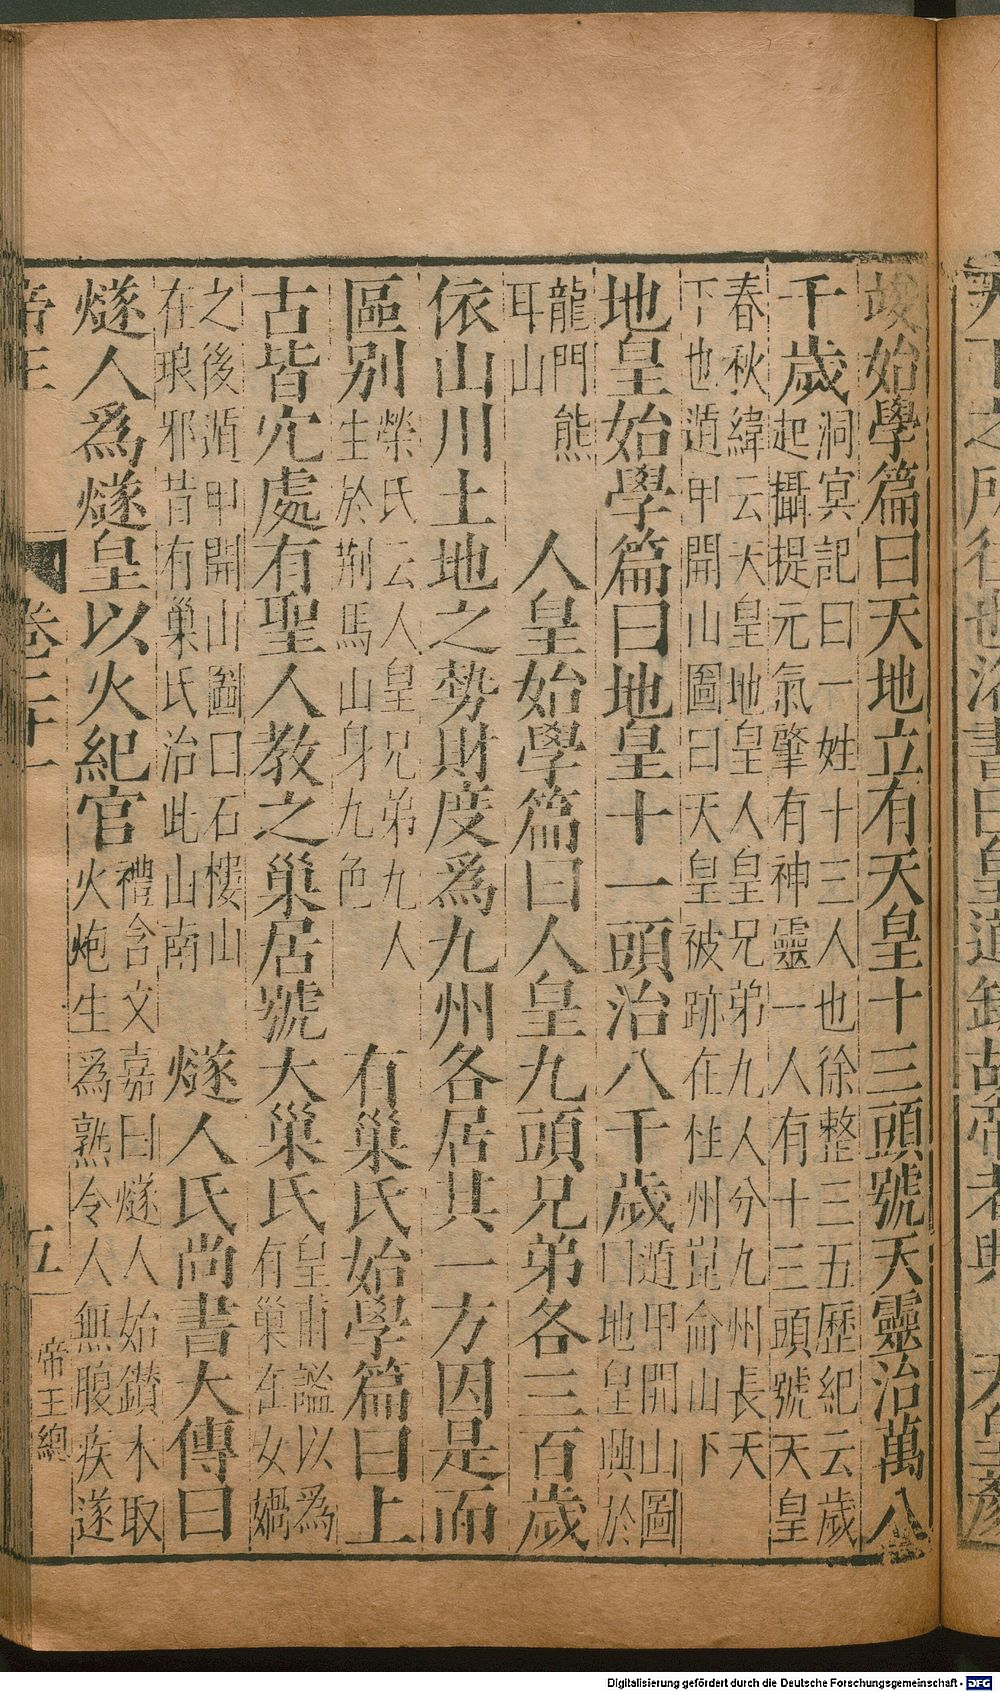 天下之所往也洛書曰皇道缺故帝者興 天皇
峻始學篇曰天地立有天皇十三頭號天靈治萬八
千歲
洞冥記曰一姓十三人也徐整三五歷紀云歲
起攝提元氣肇有神靈一人有十三頭號天皇
春秋緯云天皇地皇人皇兄弟九人分九州長天
下也遁甲開山圖曰天皇被跡在柱州崑侖山下
地皇始學篇曰地皇十一頭治八千歲
遁甲開山圖
曰地皇興於
龍門熊
耳山
人皇始學篇曰人皇九頭兄弟各三百歲
依山川土地之勢財度爲九州各居其一方因是而
區別
榮氏云人皇兄弟九人
生於荆馬山身九色
有巢氏始學篇曰上
古皆穴處有聖人教之巢居號大巢氏
皇甫謐以爲
有巢在女媧
之後遁甲開山圖曰石樓山
在琅邪昔有巢氏治此山南
燧人氏尚書大傳曰
燧人爲燧皇以火紀官
禮含文嘉曰燧人始鑽木取
火炮生爲熟令人無腹疾遂
帝王 卷三十一 五 帝王總
Digitalisierung gefördert durch die Deutsche Forschungsgemeinschaft - DFG